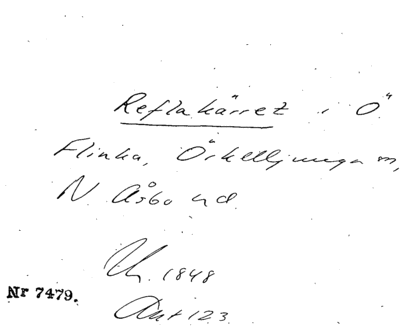 Reflakärret i Ö
Flinka, Örkelljunga sn,
N. Åsbo hd
Uh. 1848
Akt 123
Nr 7479.